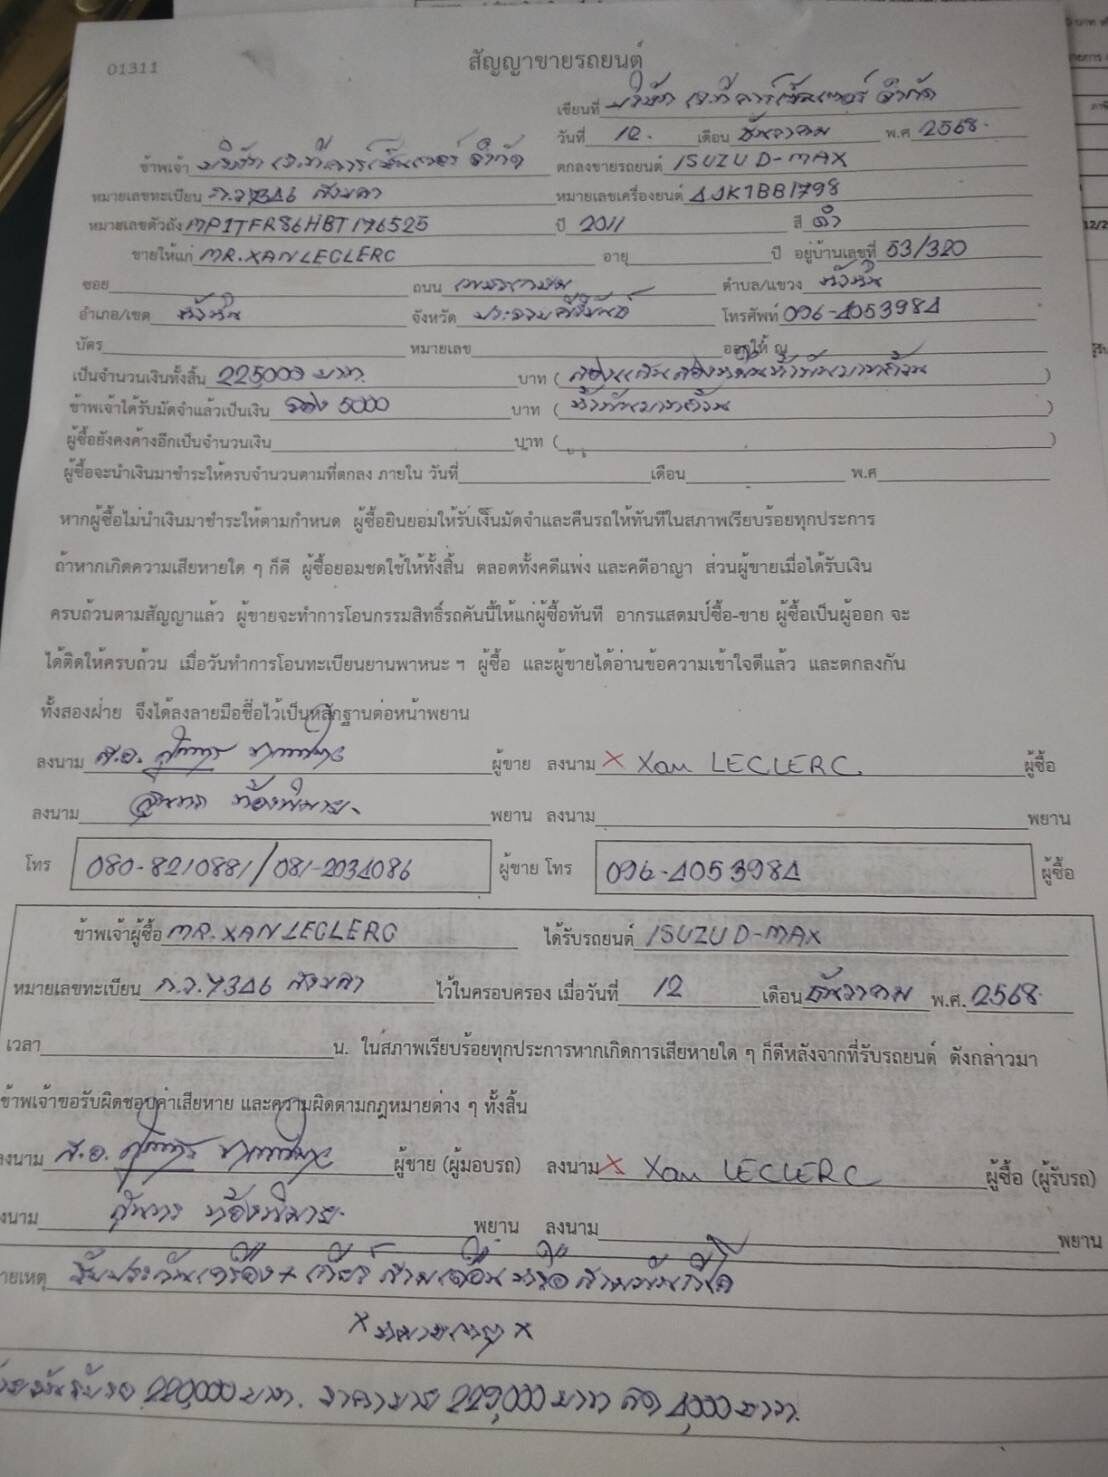 01311
สัญญาขายรถยนต์
เขียนที่ บริษัท เจ.ที คาร์เซ็นเตอร์ จำกัด
วันที่ 12. เดือน ธันวาคม พ.ศ 2568.
ข้าพเจ้า บริษัท เจ.ที คาร์เซ็นเตอร์ จำกัด ตกลงขายรถยนต์ ISUZU D-MAX
หมายเลขทะเบียน 7346 สงขลา หมายเลขเครื่องยนต์ 4JK1BB1798
หมายเลขตัวถัง MP1TFR86HBT176525 ปี 2011 สี ดำ
ขายให้แก่ MR. XAN LECLERC อายุ ปี อยู่บ้านเลขที่ 53/320
ซอย ถนน เพชรเกษม ตำบล/แขวง หัวหิน
อำเภอ/เขต หัวหิน จังหวัด ประจวบคีรีขันธ์ โทรศัพท์ 096-4053984
บัตร หมายเลข ออกให้ ณ
เป็นจำนวนเงินทั้งสิ้น 225000 บาท. บาท (สองแสนสองหมื่นห้าพันบาทถ้วน)
ข้าพเจ้าได้รับมัดจำแล้วเป็นเงิน จอง 5000 บาท (ห้าพันบาทถ้วน)
ผู้ซื้อยังคงค้างอีกเป็นจำนวนเงิน บาท ( )
ผู้ซื้อจะนำเงินมาชำระให้ครบจำนวนตามที่ตกลง ภายใน วันที่ เดือน พ.ศ
หากผู้ซื้อไม่นำเงินมาชำระให้ตามกำหนด ผู้ซื้อยินยอมให้รับเงินมัดจำและคืนรถให้ทันทีในสภาพเรียบร้อยทุกประการ
ถ้าหากเกิดความเสียหายใด ๆ ก็ดี ผู้ซื้อยอมชดใช้ให้ทั้งสิ้น ตลอดทั้งคดีแพ่ง และคดีอาญา ส่วนผู้ขายเมื่อได้รับเงิน
ครบถ้วนตามสัญญาแล้ว ผู้ขายจะทำการโอนกรรมสิทธิ์รถคันนี้ให้แก่ผู้ซื้อทันที อากรแสตมป์ซื้อ-ขาย ผู้ซื้อเป็นผู้ออก จะ
ได้ติดให้ครบถ้วน เมื่อวันทำการโอนทะเบียนยานพาหนะ ฯ ผู้ซื้อ และผู้ขายได้อ่านข้อความเข้าใจดีแล้ว และตกลงกัน
ทั้งสองฝ่าย จึงได้ลงลายมือชื่อไว้เป็นหลักฐานต่อหน้าพยาน
ลงนาม ส.อ. ผู้ขาย ลงนาม × Xan LECLERC ผู้ซื้อ
ลงนาม พยาน ลงนาม พยาน
โทร 080-8210881/081-2034086 ผู้ขาย โทร 096-4053984 ผู้ซื้อ
ข้าพเจ้าผู้ซื้อ MR. XAN LECLERC ได้รับรถยนต์ ISUZU D-MAX
หมายเลขทะเบียน 7346 สงขลา ไว้ในครอบครอง เมื่อวันที่ 12 เดือน ธันวาคม พ.ศ. 2568.
เวลา น. ในสภาพเรียบร้อยทุกประการหากเกิดการเสียหายใด ๆ ก็ดีหลังจากที่รับรถยนต์ ดังกล่าวมา
ข้าพเจ้าขอรับผิดชอบค่าเสียหาย และความผิดตามกฎหมายต่าง ๆ ทั้งสิ้น
ลงนาม ส.อ. ผู้ขาย (ผู้มอบรถ) ลงนาม × Xan LECLERC ผู้ซื้อ (ผู้รับรถ)
ลงนาม พยาน ลงนาม พยาน
ายเหตุ รับประกันเครื่อง + เกียร์ สามเดือน หรือ สามพันกิโล
220,000 บาท. ราคาขาย 229,000 บาท ลด 4,000 บาท.